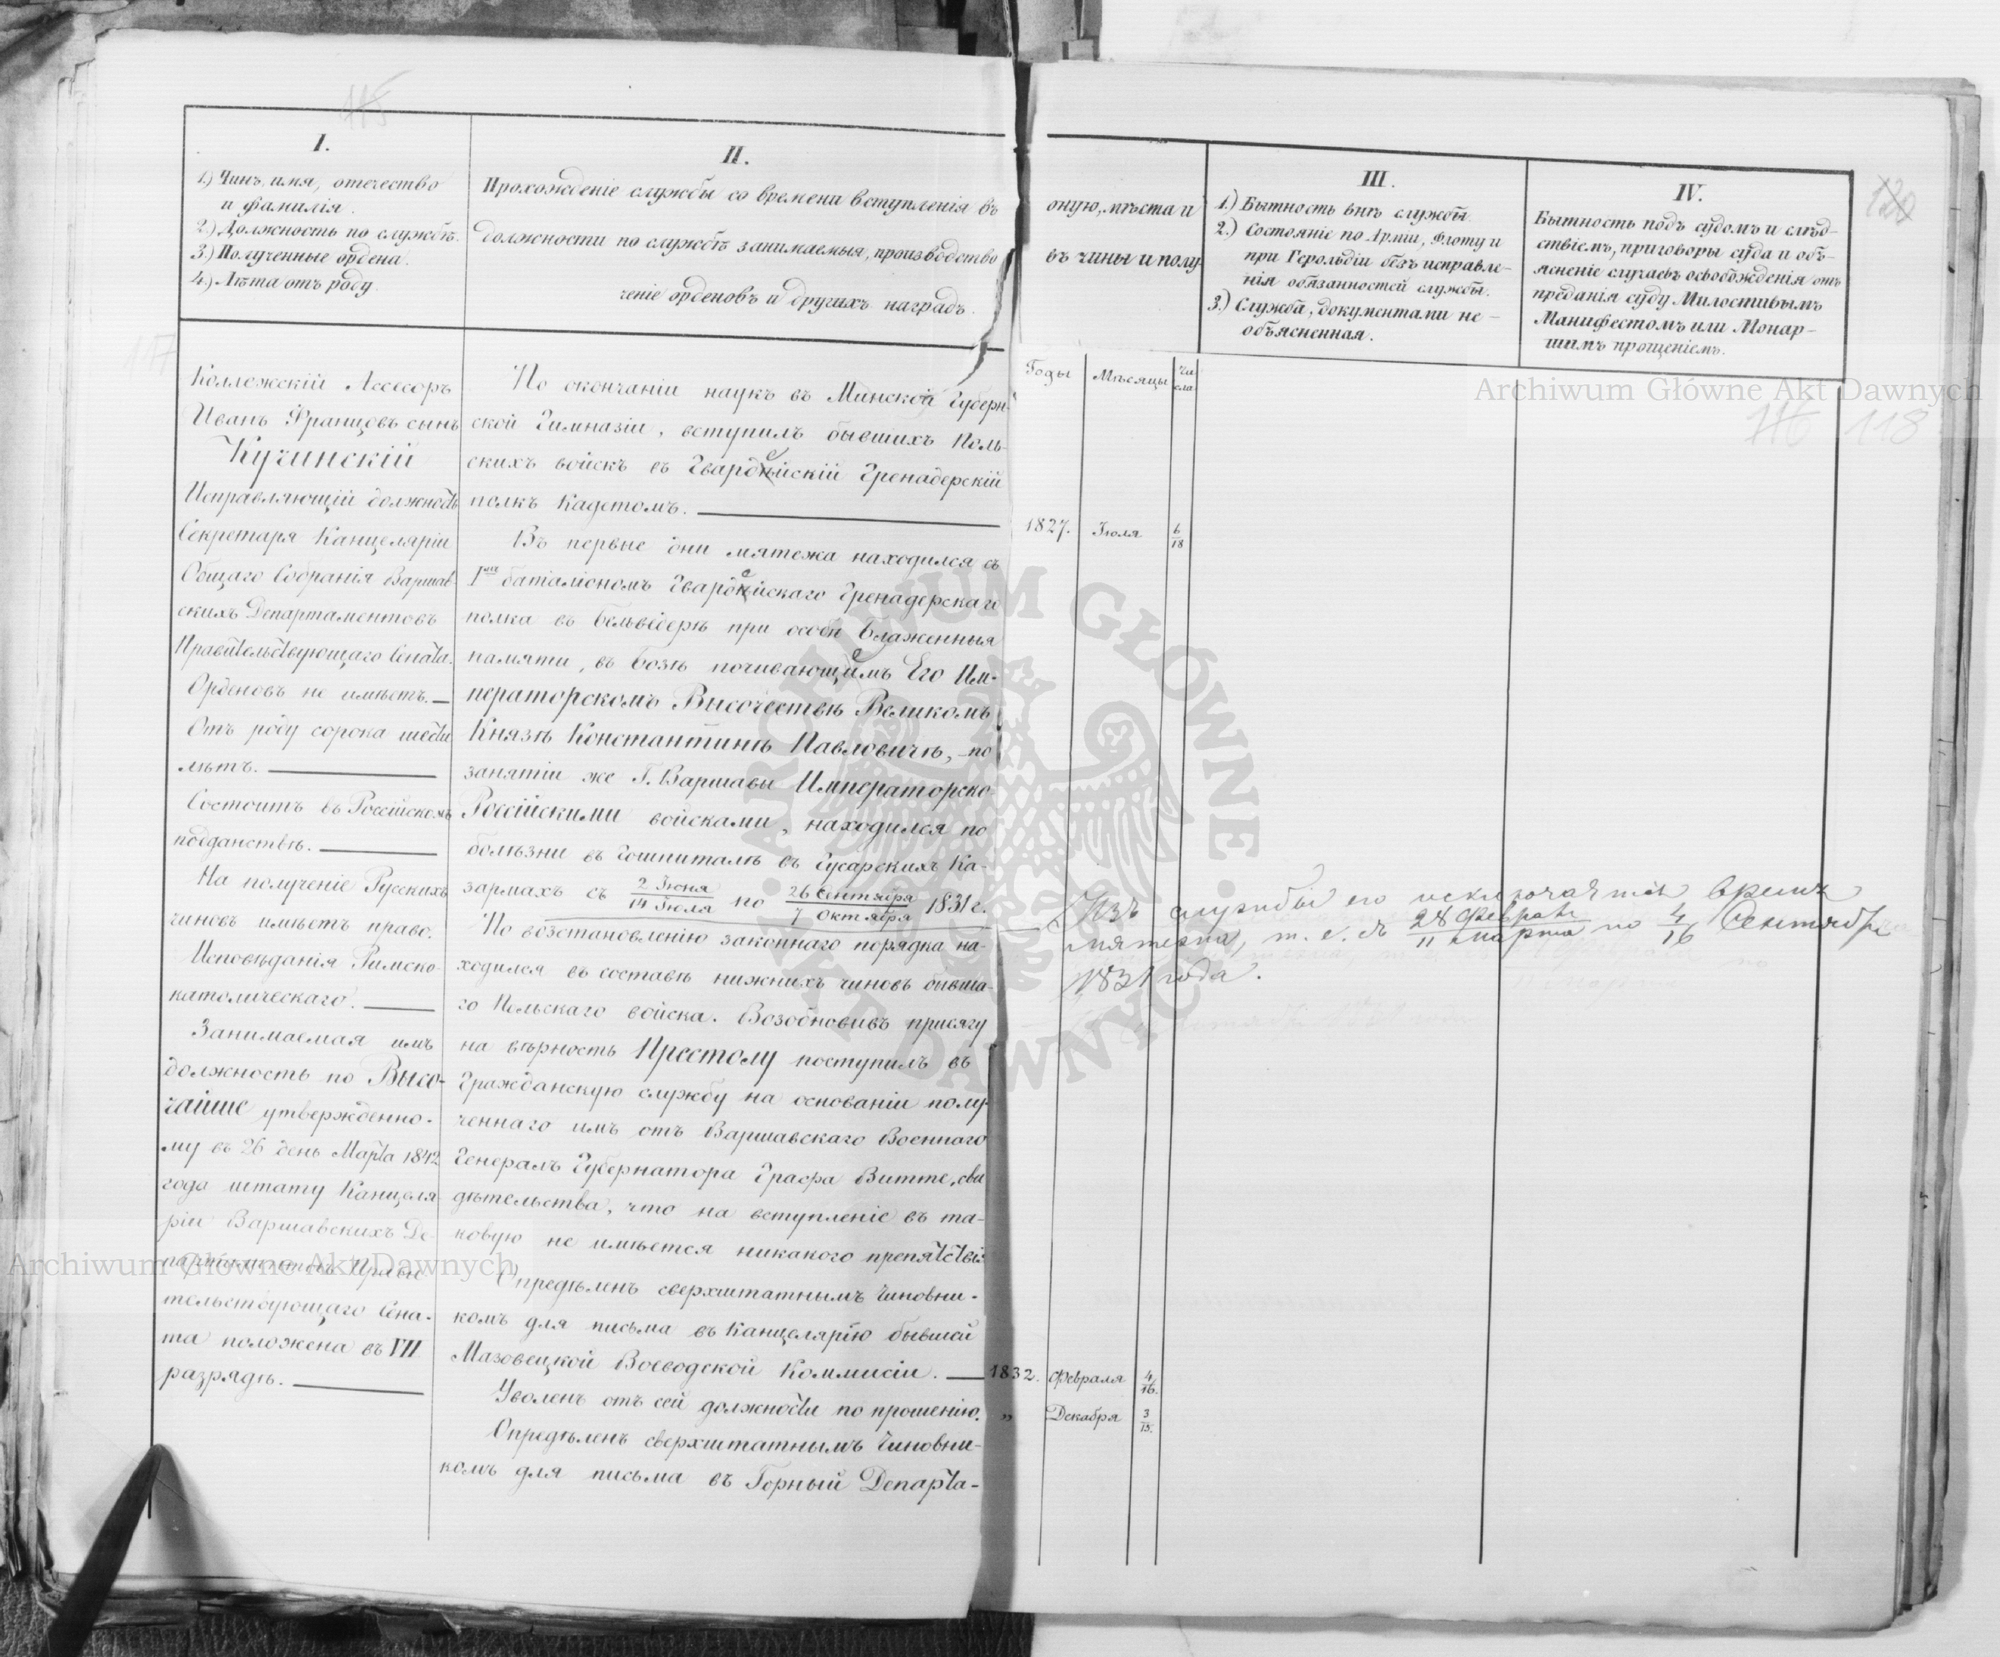 115
I.
1.) Чинъ, имя, отечество
и фамилія.
2.) Должность по службѣ.
3.) Полученные ордена.
4.) Лѣта отъ роду.
II.
Прохожденіе службы со времени вступленія въ
оную, мѣста и
должности по службѣ занимаемыя, производство
въ чины и полу-
ченіе орденовъ и другихъ наградъ.
III.
1.) Бытность внѣ службы.
2.) Состояніе по Арміи, Флоту и
при Герольдіи безъ исправле-
нія обязанностей службы.
3.) Служба, документами не-
объясненная.
IV.
Бытность подъ судомъ и слѣд-
ствіемъ, приговоры суда и объ-
ясненіе случаевъ освобожденія отъ
преданія суду Милостивымъ
Манифестомъ или Монар-
шимъ прощеніемъ.
120
117
116 118
Коллежскій Ассесоръ
Иванъ Францовъ сынъ
Кучинскій
Исправляющій должность
Секретаря Канцеляріи
Общаго Собранія Варшав-
скихъ Департаментовъ
Правительствующаго Сената.
Орденовъ не имѣетъ.
Отъ роду сорока шести
лѣтъ.
Состоитъ въ Россійскомъ
подданствѣ.
На полученіе Русскихъ
чиновъ имѣетъ право.
Исповѣданія Римско-
католическаго.
Занимаемая имъ
должность по Высо-
чайше утвержденно-
му въ 26 день Марта 1842
года штату Канцеля-
ріи Варшавскихъ Де-
партаментовъ Прави-
тельствующаго Сена-
та положена въ VII
разрядѣ.
По окончаніи наукъ въ Минской Губерн-
ской Гимназіи, вступилъ бывшихъ Поль-
скихъ войскъ въ Гвардейскій Гренадерскій
полкъ Кадетомъ.
Въ первые дни мятежа находился съ
1мъ баталіономъ Гвардейскаго Гренадерскаго
полка въ Бельведерѣ при особѣ блаженныя
памяти, въ Бозѣ почивающемъ Его Им-
ператорскомъ Высочествѣ Великомъ
Князѣ Константинѣ Павловичѣ, по
занятіи же Г. Варшавы Императорско-
Россійскими войсками, находился по
болѣзни въ гошпиталѣ въ Гусарскихъ Ка-
зармахъ съ 2 Іюня/14 Іюля по 26 Сентября/7 Октября 1831 г.
По возстановленію законнаго порядка на-
ходился въ составѣ нижнихъ чиновъ бывша-
го Польскаго войска. Возобновивъ присягу
на вѣрность Престолу поступилъ въ
Гражданскую службу на основаніи полу-
ченнаго имъ отъ Варшавскаго Военнаго
Генералъ Губернатора Графа Витте, сви
дѣтельства, что на вступленіе въ та-
ковую не имѣется никакого препятствія
Опредѣленъ сверхштатнымъ Чиновни-
комъ для письма въ Канцелярію бывшей
Мазовецкой Воеводской Коммисіи.
Уволенъ отъ сей должности по прошенію.
Опредѣленъ сверхштатнымъ Чиновни-
комъ для письма въ Горный Департа-
Годы Мѣсяцы Числа
1827. Іюля 6/18
1832. Февраля 4/16.
" Декабря 3/15.
Изъ службы его исключается время
мятежа, т. е. съ 28 Февраля/11 Марта по 4/16 Сентября
1831 года.
Archiwum Główne Akt Dawnych
Archiwum Główne Akt Dawnych
ARCHIWUM GŁÓWNE AKT DAWNYCH